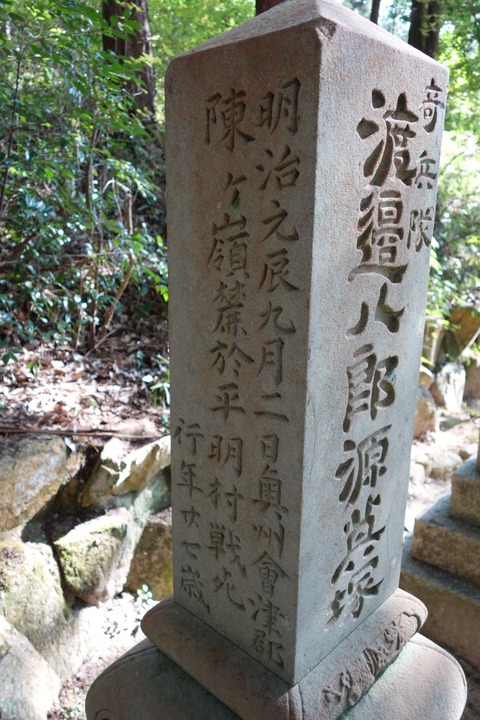 奇兵隊
渡邉八郎源英塚
明治元辰九月二日奥州會津郡
陳ヶ嶺麓於平明村戦死
行年廿七歳